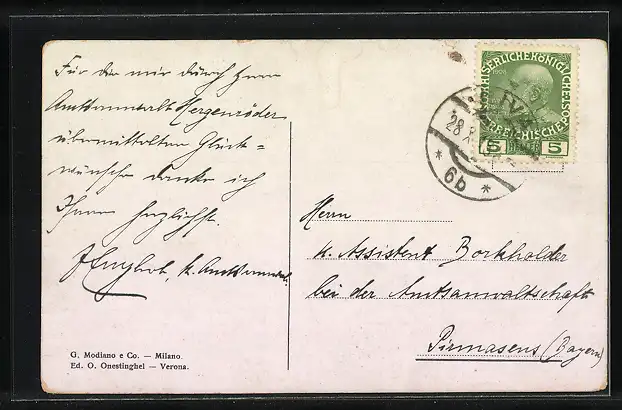 Für die mir durch Herrn
Amtsanwalt Hergenröder
übermittelten Glück=
wünsche danke ich
Ihnen herzlichst.
k. Amtsanwalt.
G. Modiano e Co. — Milano.
Ed. O. Onestinghel — Verona.
KAISERLICHE KÖNIGLICHE
1908
ÖSTERREICHISCHE
5 HELLER 5
RIVA
28
* 6b *
Herrn
k. Assistent Borkholder
bei der Amtsanwaltschaft
Pirmasens (Bayern)